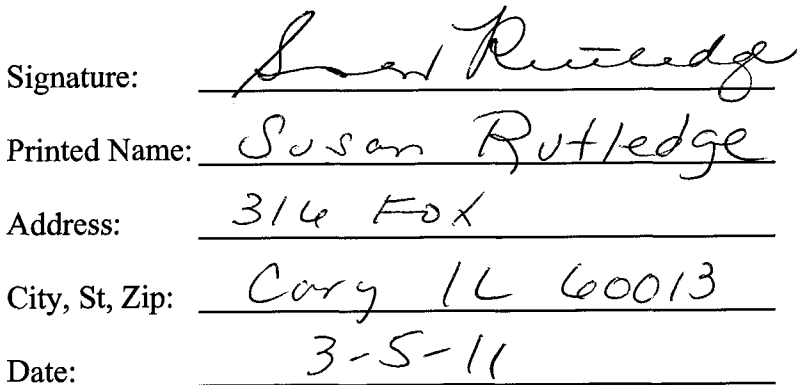 Signature: Susan Rutledge
Printed Name: Susan Rutledge
Address: 316 Fox
City, St, Zip: Cary IL 60013
Date: 3-5-11